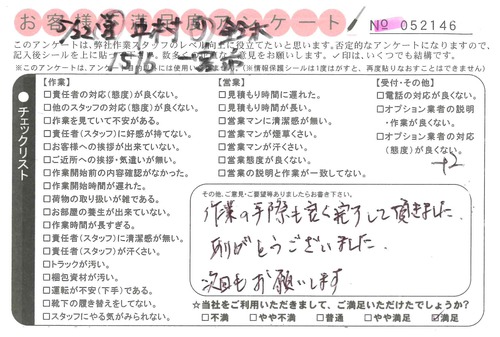 お客様不満足度アンケート
No 052146
このアンケートは、弊社作業スタッフのレベル向上に役立てたいと思います。否定的なアンケートになりますので、
記入後シールを上に貼って
お願いします。✓印は、いくつでも結構です。
(※情報保護シールは1度はがすと、再度貼りなおすことはできません)
1516
チェックリスト
【作業】
□責任者の対応(態度)が良くない。
□他のスタッフの対応(態度)が良くない。
□作業を見ていて不安がある。
□責任者(スタッフ)に好感が持てない。
□お客様への挨拶が出来ていない。
□ご近所への挨拶・気遣いが無い。
□作業開始前の内容確認がなかった。
□作業開始時間が遅れた。
□荷物の取り扱いが雑である。
□お部屋の養生が出来ていない。
□作業時間が長すぎる。
□責任者(スタッフ)に清潔感が無い。
□責任者(スタッフ)が汗くさい。
□トラックが汚い。
□梱包資材が汚い。
□運転が不安(下手)である。
□靴下の履き替えをしてない。
□スタッフにやる気がみられない。
【営業】
□見積もり時間に遅れた。
□見積もり時間が長い。
□営業マンに清潔感が無い。
□営業マンが煙草くさい。
□営業マンが汗くさい。
□営業態度が良くない。
□営業の説明と作業が一致してない。
【受付・その他】
□電話の対応が良くない。
□オプション業者の説明
・作業が良くない。
□オプション業者の対応
(態度)が良くない。
+2
その他、ご意見・ご要望等ありましたらお書き下さい。
作業の手際も良く完了して頂きました。
ありがとうございました。
次回もお願いします
☆当社をご利用いただきまして、ご満足いただけたでしょうか?
□不満 □やや不満 □普通 □やや満足 ☑満足